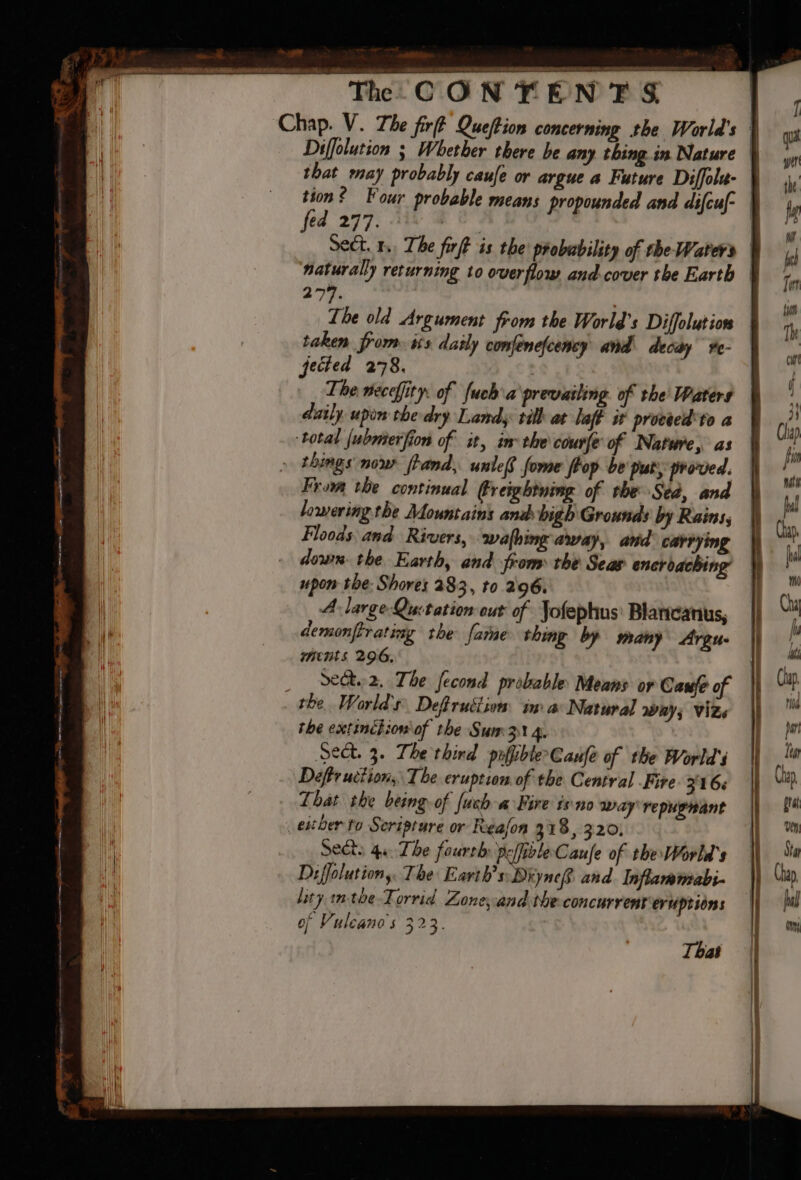 The CONTENTS
Chap. V. The firſt Queſtion concerning the World's
Diſſolution ; Whether there be any thing in Nature
that may probably cauſe or argue a Future Diſſolu-
tion? Four probable means propounded and diſcuſ-
ſed 277.
Sect. 1. The firſt is the probability of the Waters
naturally returning to overflow and cover the Earth
277.
The old Argument from the World's Diſſolution
taken from its daily conſeneſcency and decay re-
jected 278.
The neceſſity of ſuch a prevailing of the Waters
daily upon the dry Land, till at laſt it proceed to a
total ſubmerſion of it, in the courſe of Nature, as
things now ſtand, unleſſ ſome ſtop be put, proved.
From the continual ſtreightning of the Sea, and
lowering the Mountains and high Grounds by Rains,
Floods and Rivers, waſhing away, and carrying
down the Earth, and from the Seas encroaching
upon the Shores 283, to 296.
A large Quotation out of Joſephus Blancanus,
demonſtrating the ſame thing by many Argu-
ments 296.
Sect. 2. The ſecond probable Means or Cauſe of
the World's Deſtruction in a Natural way, viz.
the extinction of the Sun 314.
Sect. 3. The third poſſible Cauſe of the World's
Deſtruction, The eruption of the Central Fire 316.
That the being of ſuch a Fire is no way repugnant
either to Scripture or Reaſon 318, 320.
Sect. 4. The fourth poſſible Cauſe of the World's
Diſſolution, The Earth's Dryneſſ and Inflammabi-
lity in the Torrid Zone, and the concurrent eruptions
of Vulcano's 323.
That